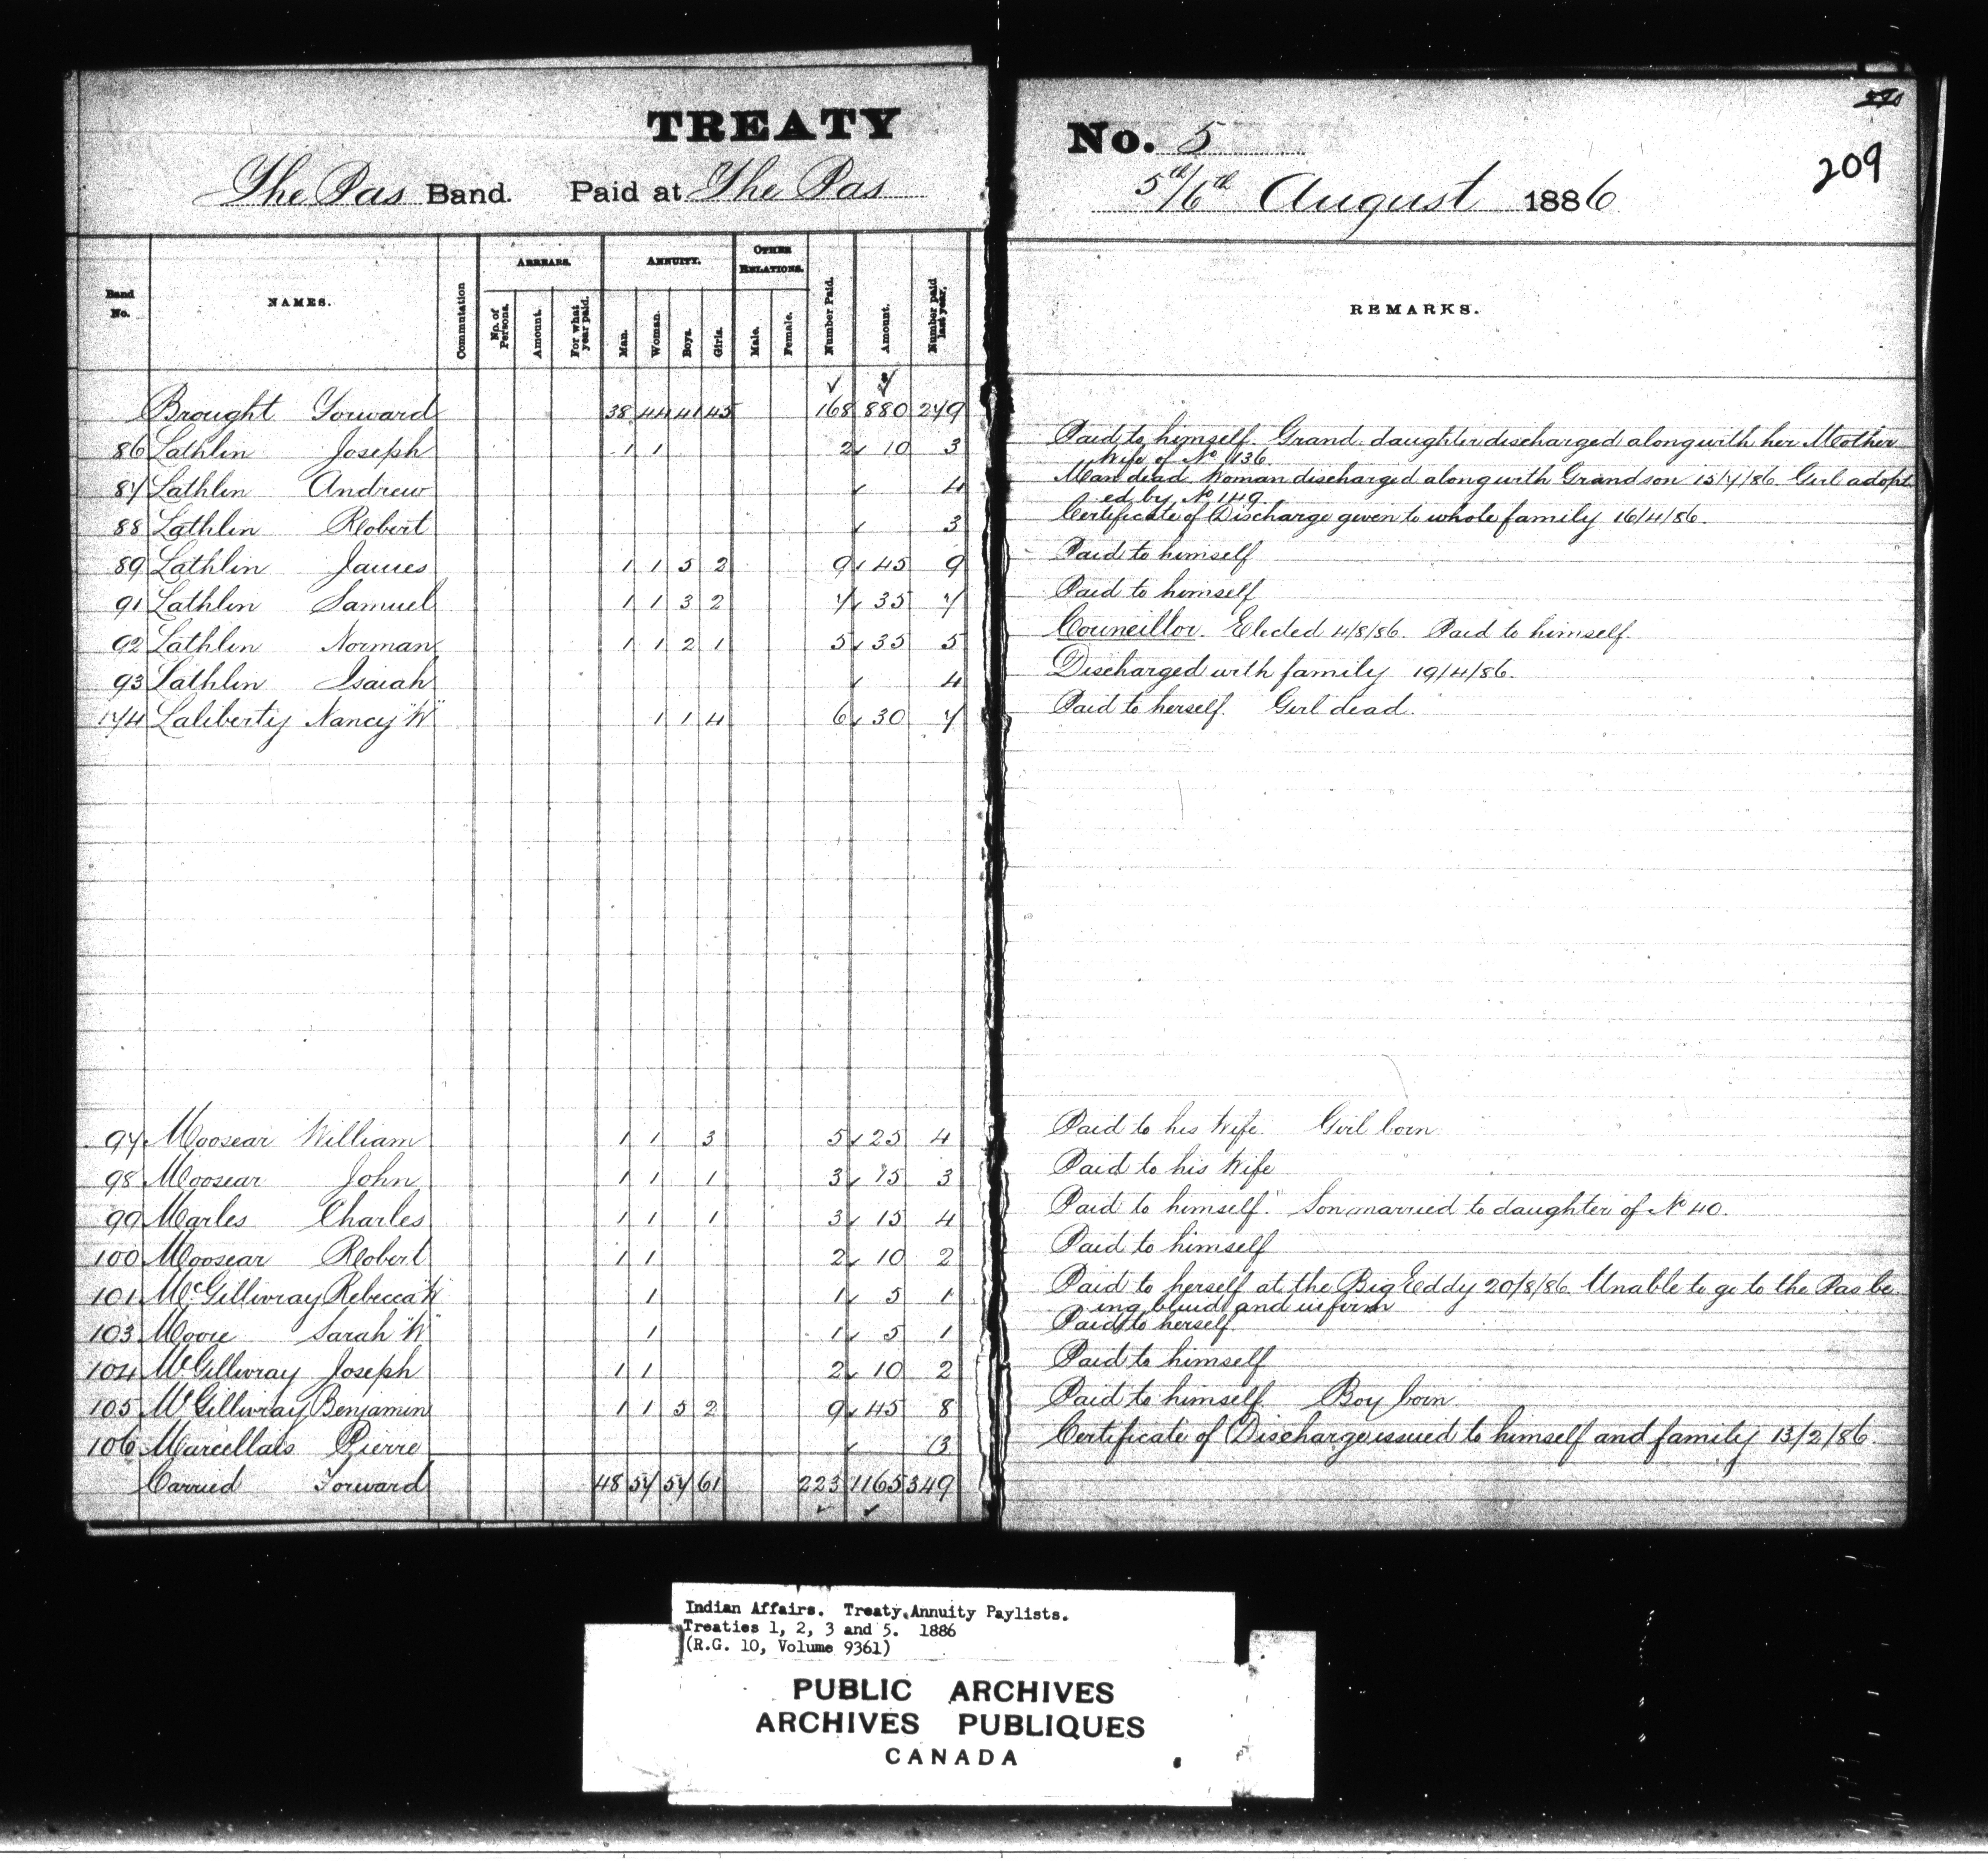 TREATY No. 5
209
The Pas Band. Paid at The Pas 5th/6th August 1886
Band No. NAMES. Commutation ARREARS. No. of Persons. Amount. For what year paid. ANNUITY. Man. Woman. Boys. Girls. OTHER RELATIONS. Male. Female. Number Paid. Amount. Number paid last year. REMARKS.
Brought Forward 38 44 41 45 168 880 279
86 Lathlin Joseph 1 1 2 10 3 Paid to himself. Grand-daughter discharged along with her Mother
Wife of No 136.
87 Lathlin Andrew 4 Man dead. Woman discharged along with Grandson 15/4/86. Girl adopt
ed by No 149.
88 Lathlin Robert 3 Certificate of Discharge given to whole family 16/4/86.
89 Lathlin James 1 1 5 2 9 45 9 Paid to himself
91 Lathlin Samuel 1 1 3 2 7 35 7 Paid to himself
92 Lathlin Norman 1 1 2 1 5 35 5 Councillor. Elected 4/8/86. Paid to himself.
93 Lathlin Isaiah 4 Discharged with family 19/4/86.
174 Laliberty Nancy "W" 1 1 4 6 30 7 Paid to herself. Girl dead.
97 Moosear William 1 1 3 5 25 4 Paid to his Wife. Girl born
98 Moosear John 1 1 1 3 15 3 Paid to his Wife
99 Marles Charles 1 1 1 3 15 4 Paid to himself. Son married to daughter of No 40.
100 Moosear Robert 1 1 2 10 2 Paid to himself
101 McGillivray Rebecca "W" 1 1 5 1 Paid to herself at the Big Eddy 20/8/86. Unable to go to the Pas be
ing blind and infirm
103 Moore Sarah "W" 1 1 5 1 Paid to herself.
104 McGillivray Joseph 1 1 2 10 2 Paid to himself
105 McGillivray Benjamin 1 1 5 2 9 45 8 Paid to himself. Boy born
106 Marcellais Pierre 13 Certificate of Discharge issued to himself and family 13/2/86.
Carried Forward 48 57 57 61 223 1165 349
Indian Affairs. Treaty Annuity Paylists.
Treaties 1, 2, 3 and 5. 1886
(R.G. 10, Volume 9361)
PUBLIC ARCHIVES
ARCHIVES PUBLIQUES
CANADA